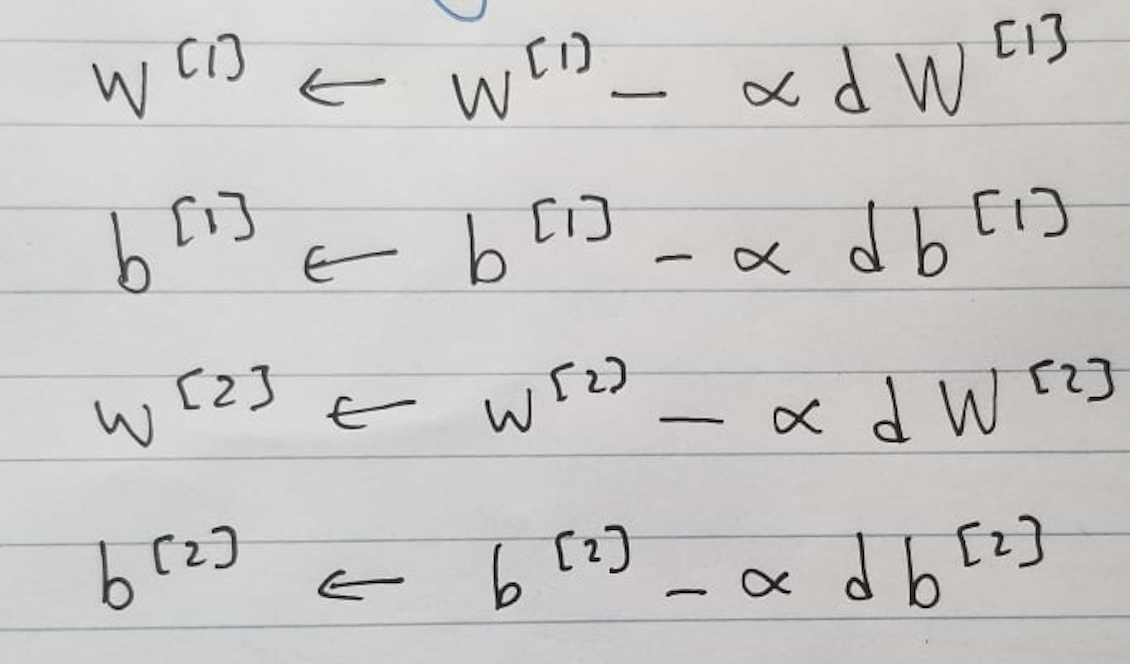 W^[1] ← W^[1] - α d W^[1]
b^[1] ← b^[1] - α d b^[1]
W^[2] ← W^[2] - α d W^[2]
b^[2] ← b^[2] - α d b^[2]